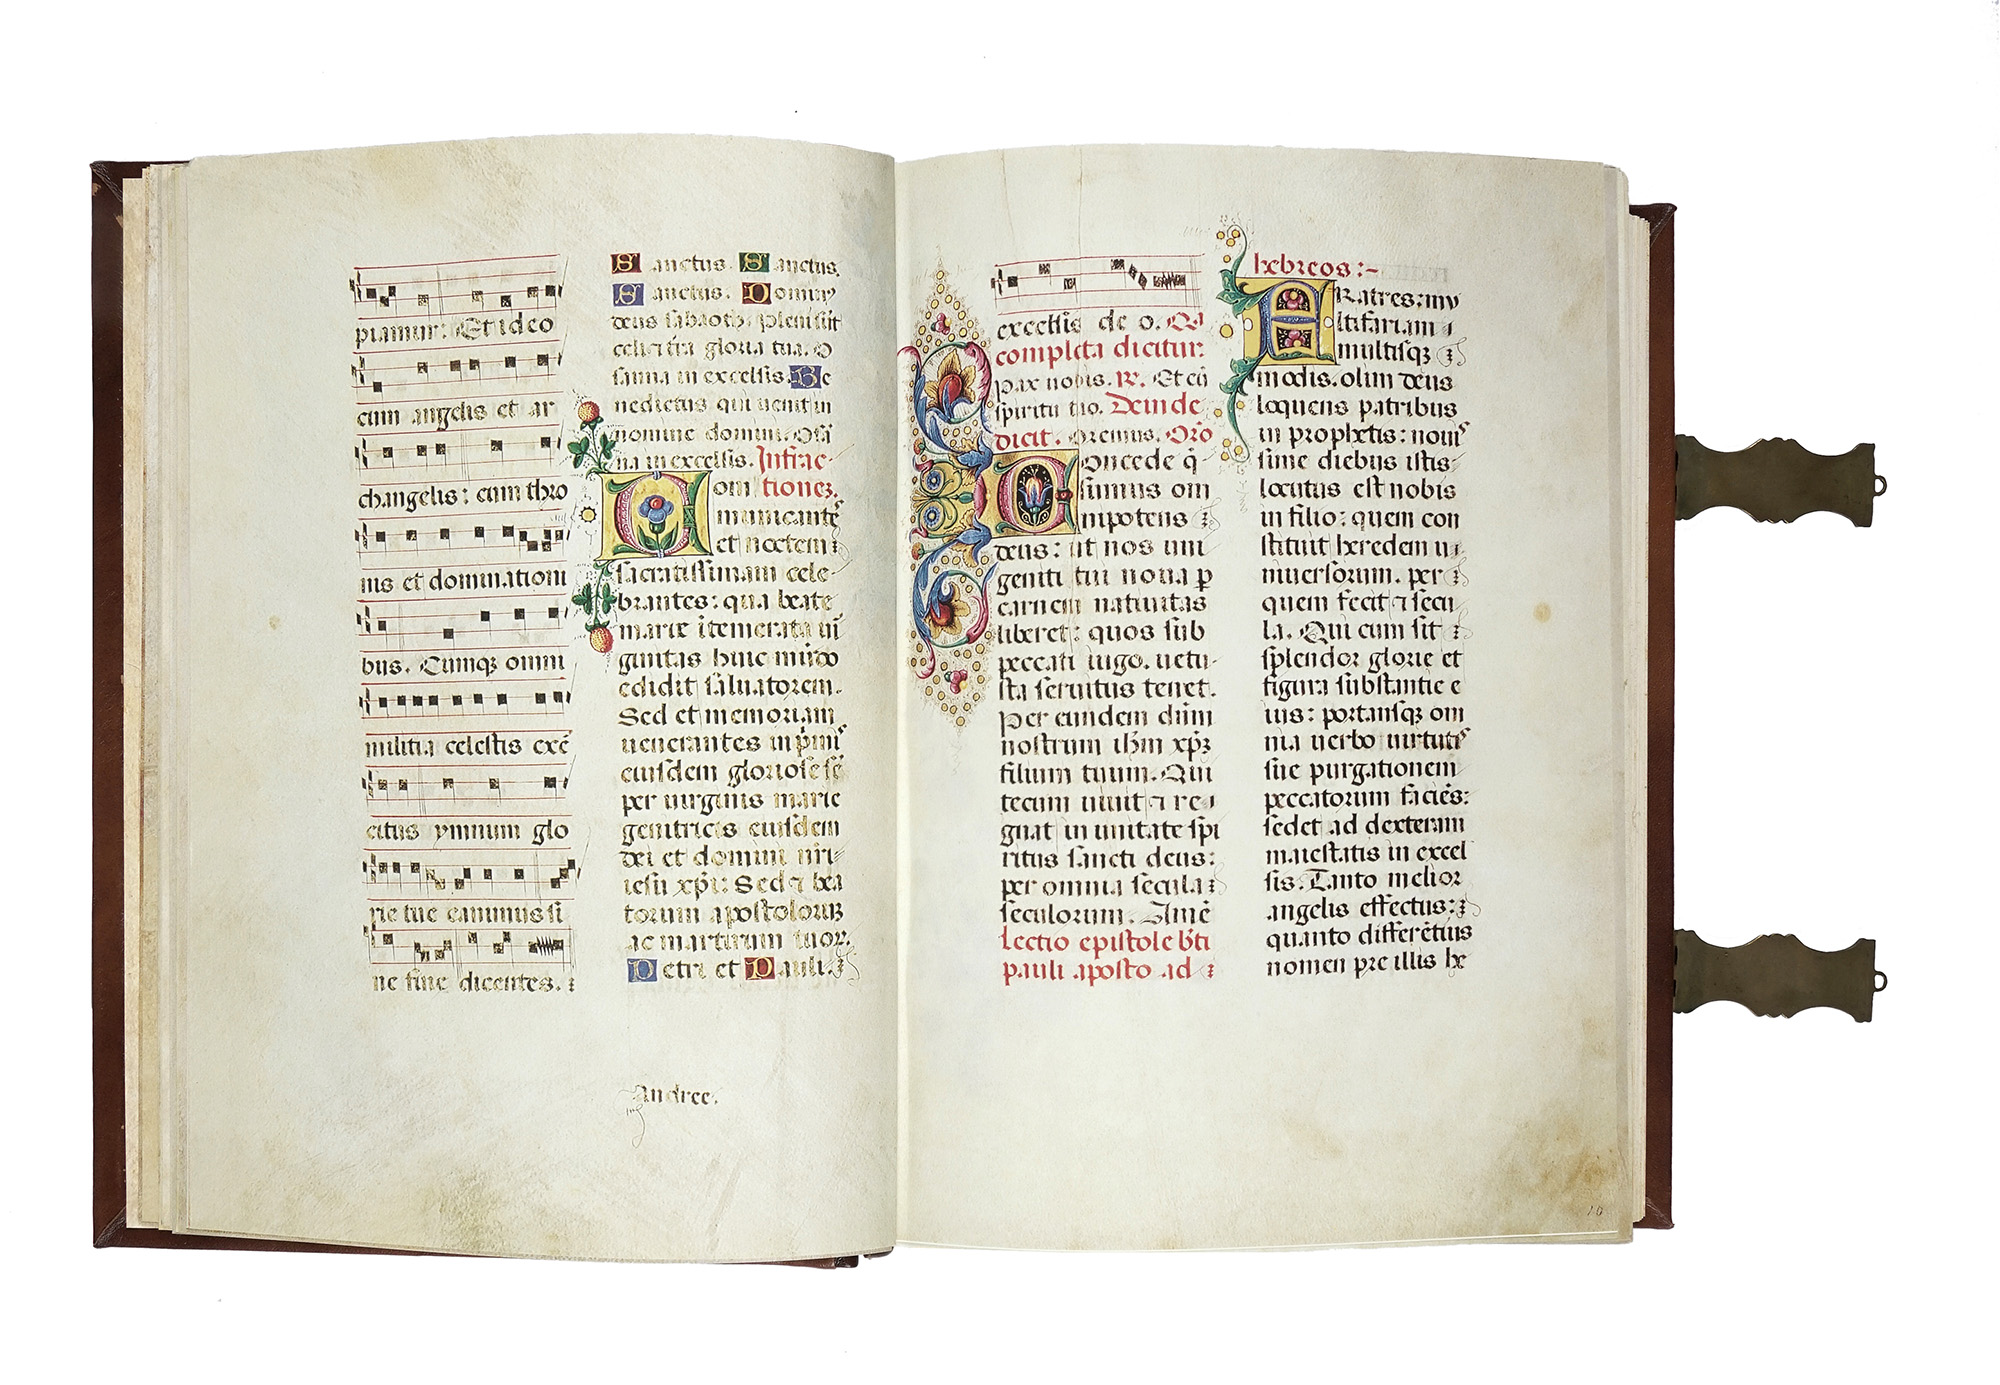 piamur: Et ideo
cum angelis et ar
changelis: cum thro
nis et dominationi
bus. Cumqz omni
militia celestis exē
citus ymnum glo
rie tue canimus si
ne fine dicentes.
Sanctus. Sanctus.
Sanctus. Domin⁹
deus sabaoth. Pleni sūt
celi et tr̄a gloria tua. O
sanna in excelsis. Be
nedictus qui uenit in
nomine domini. Osā
na in excelsis. Infrac-
Com tionez.
municantes
et noctem
sacratissimam cele-
brantes: qua beate
marie ītemerata uī
ginitas huic mūdo
edidit saluatorem.
Sed et memoriam
uenerantes in p̄mis
eiusdem gloriose sē
per uirginis marie
genitricis eiusdem
dei et domini nr̄i
iesu xp̄i: Sed ⁊ bea
torum apostolorum
ac martirum tuor.
Petri et Pauli.
Andree.
excelsis deo.
completa dicitur:
pax uobis. R. Et cū
spiritu tuo. Deinde
dicit. Oremus. Orō
Concede q̄
sumus om
nipotens
deus: ut nos uni
geniti tui noua ꝑ
carnem natiuitas
liberet: quos sub
peccati iugo. uetu-
sta seruitus tenet.
Per eundem dūm
nostrum ihm xp̄z
filium tuum. Qui
tecum uiuit ⁊ re
gnat in unitate spi
ritus sancti deus:
per omnia secula
seculorum. Amē
Lectio epistole bti
pauli aposto ad
hebreos:-
FRatres: mu
ltifariam
multisqz
modis. olim deus
loquens patribus
in prophetis: nouis
sime diebus istis
locutus est nobis
in filio: quem con
stituit heredem u
niuersorum. per
quem fecit ⁊ secu
la. Qui cum sit
splendor glorie et
figura substantie e
ius: portansqz om
nia uerbo uirtutis
sue purgationem
peccatorum faciēs:
sedet ad dexteram
maiestatis in excel
sis. Tanto melior
angelis effectus:
quanto differētius
nomen pre illis he
10